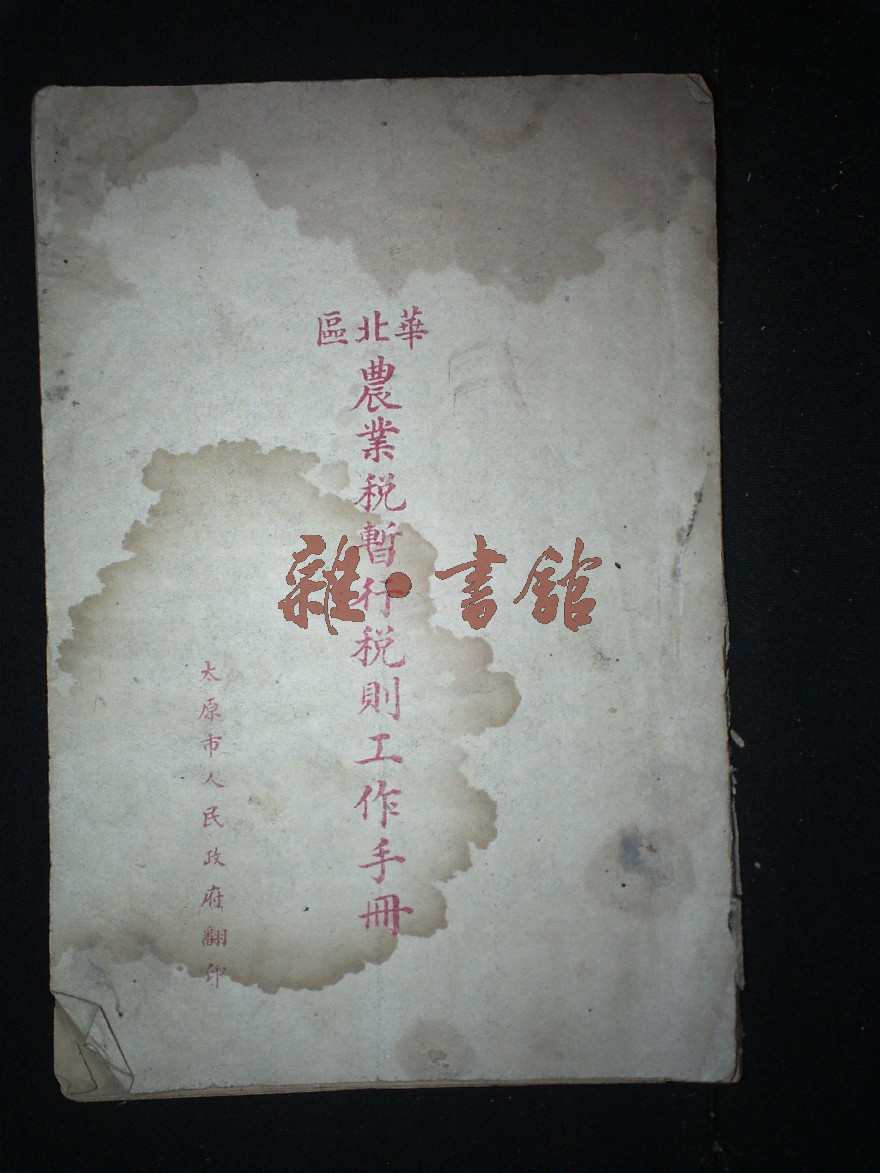 華北區
農業税暫行税則工作手冊
太原市人民政府翻印
雜·書館